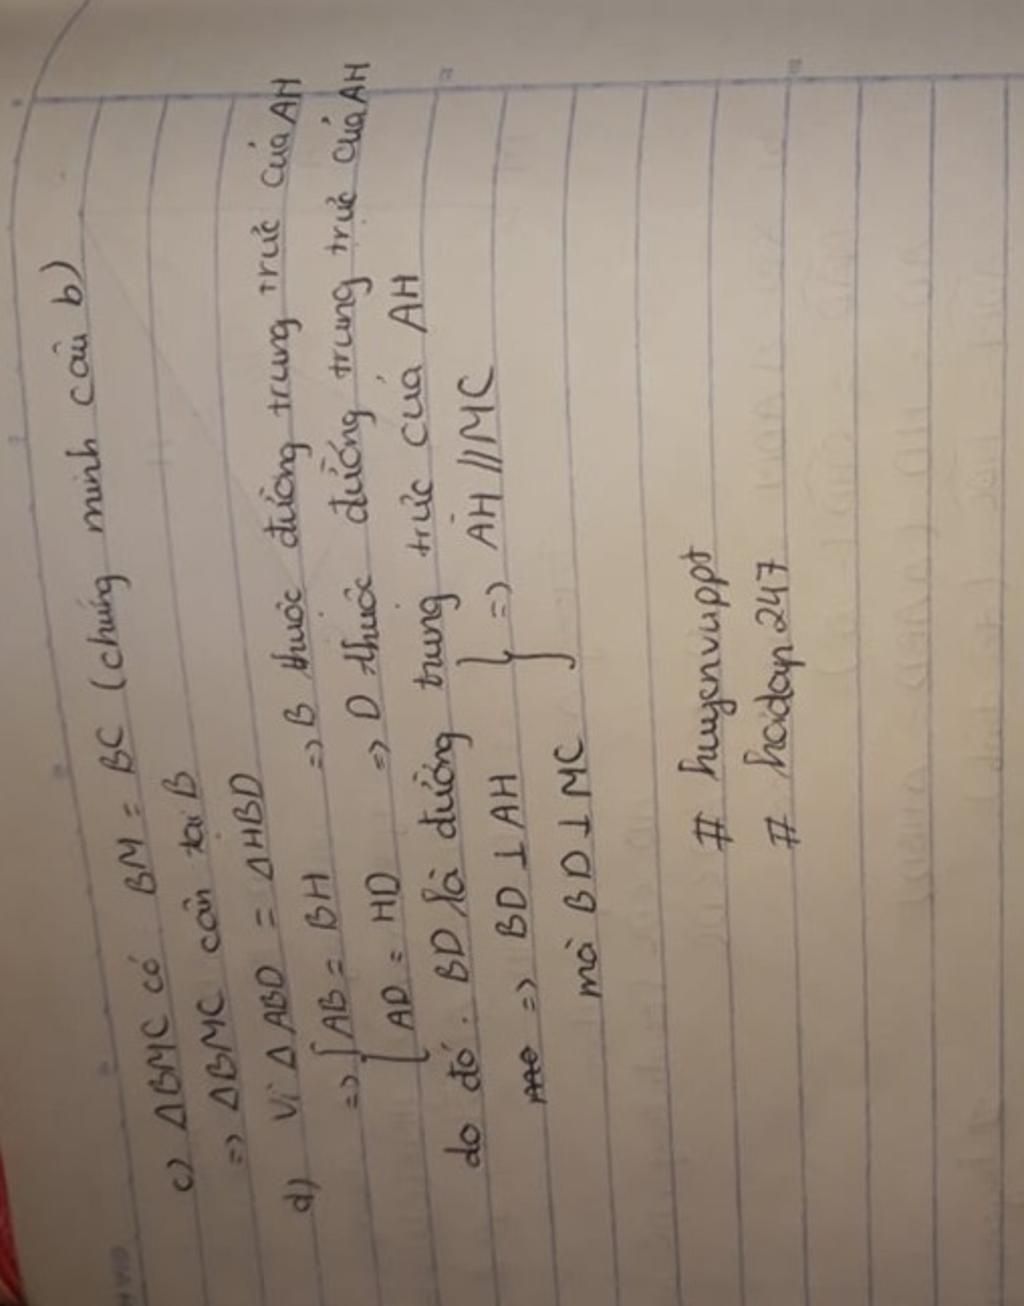 c) ΔBMC có BM = BC (chứng minh câu b)
=> ΔBMC cân tại B
d) Vì ΔABD = ΔHBD
=> { AB = BH => B thuộc đường trung trực của AH
AD = HD => D thuộc đường trung trực của AH
do đó: BD là đường trung trực của AH
=> BD ⊥ AH } => AH // MC
mà BD ⊥ MC
# huyenvuppt
# hoidap247